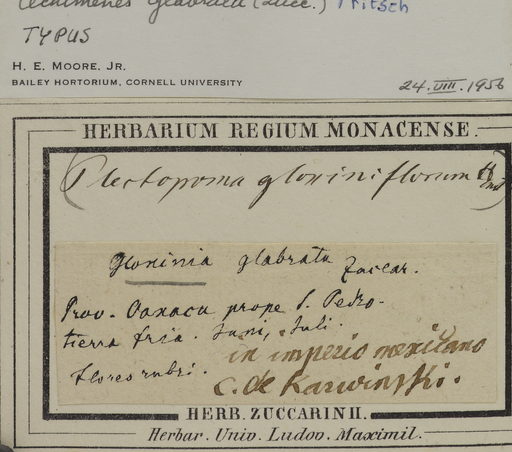 Achimenes glabrata (Zucc.) Fritsch
TYPUS
H. E. MOORE, JR.
BAILEY HORTORIUM, CORNELL UNIVERSITY
24.VIII.1956
HERBARIUM REGIUM MONACENSE.
(Plectopoma gloxiniflorum
Gloxinia glabrata Zuccar.
Prov. Oaxaca prope S. Pedro-
tierra fria. Juni, Juli.
flores rubri.
in imperio mexicano
C. de Karwinski.
HERB. ZUCCARINII.
Herbar. Univ. Ludov. Maximil.